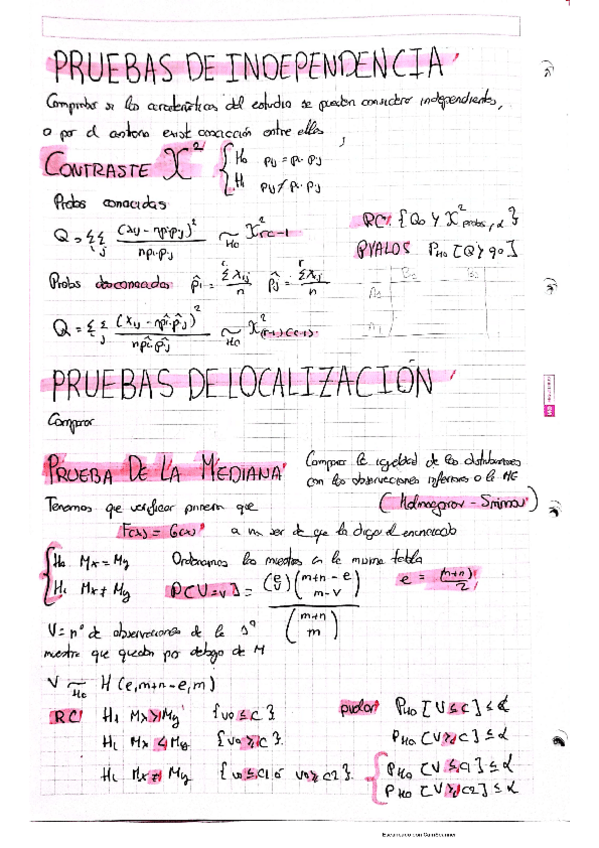 PRUEBAS DE INDEPENDENCIA
Comprobar si las características del estudio se pueden considerar independientes,
o por el contrario existe asociación entre ellos
CONTRASTE X²
H₀ pij = pi· p·j
H₁ pij ≠ pi· p·j
Probs conocidas
Q = Σi Σj (xij - npi·p·j)² / npi·p·j ~H₀ X²rc-1
RC: {Q₀ ≥ X² probs, α}
PVALOR PH₀ [Q ≥ q₀]
Probs desconocidas p̂i = Σxij / n p̂j = Σxij / n
Q = Σ Σj (xij - np̂i·p̂·j)² / np̂i·p̂·j ~H₀ X²(r-1)(c-1)
PRUEBAS DE LOCALIZACIÓN
Comparar
PRUEBA DE LA MEDIANA
Comparar la igualdad de las distribuciones
con las observaciones inferiores a la ME
Tenemos que verificar primero que
(Kolmogorov - Smirnov)
F(x) = G(x) a no ser de que lo diga el enunciado
H₀ Mx = My
H₁ Mx ≠ My
Ordenamos las muestras en la misma tabla
P[V=v] = (e v)(m+n-e m-v) / (m+n m)
e = (m+n)/2
V = nº de observaciones de la 1ª
muestra que quedan por debajo de M
V ~H₀ H(e, m+n-e, m)
RC H₁ Mx > My {v₀ ≤ c}
pvalor PH₀ [V ≤ c] ≤ α
H₁ Mx < My {v₀ ≥ c}
PH₀ [V ≥ c] ≤ α
H₁ Mx ≠ My {v₀ ≤ c1 ó v₀ ≥ c2}
PH₀ [V ≤ c1] ≤ α
PH₀ [V ≥ c2] ≤ α
Escaneado con CamScanner